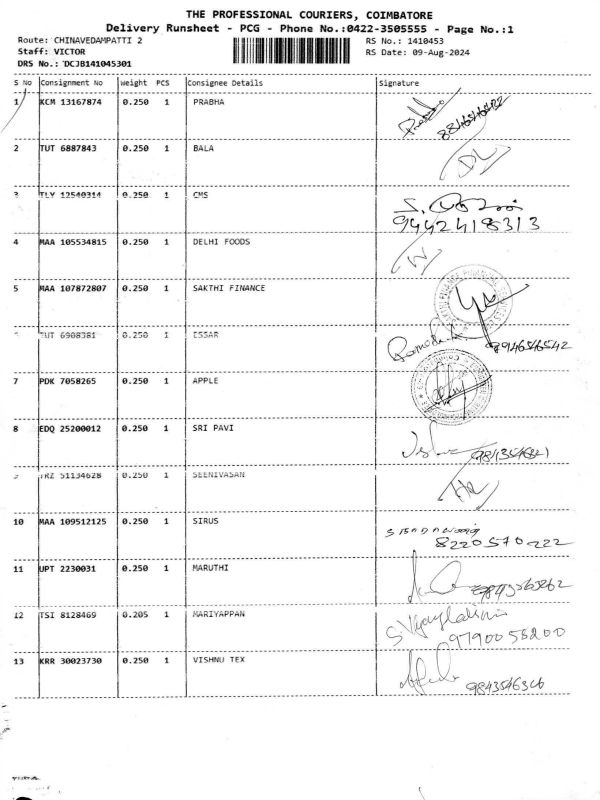 THE PROFESSIONAL COURIERS, COIMBATORE
Delivery Runsheet - PCG - Phone No.:0422-3505555 - Page No.:1
Route: CHINAVEDAMPATTI 2 RS No.: 1410453
Staff: VICTOR RS Date: 09-Aug-2024
DRS No.: DCJB141045301
S No Consignment No Weight PCS Consignee Details Signature
1 KCM 13167874 0.250 1 PRABHA
2 TUT 6887843 0.250 1 BALA
3 TLY 12540314 0.250 1 CMS
9442418313
4 MAA 105534815 0.250 1 DELHI FOODS
5 MAA 107872807 0.250 1 SAKTHI FINANCE
6 TUT 6908381 0.250 1 ESSAR
7 PDK 7058265 0.250 1 APPLE
8 EDQ 25200012 0.250 1 SRI PAVI
9 TRZ 51134628 0.250 1 SEENIVASAN
10 MAA 109512125 0.250 1 SIRUS
8220570222
11 UPT 2230031 0.250 1 MARUTHI
12 TSI 8128469 0.205 1 MARIYAPPAN
9790055200
13 KRR 30023730 0.250 1 VISHNU TEX